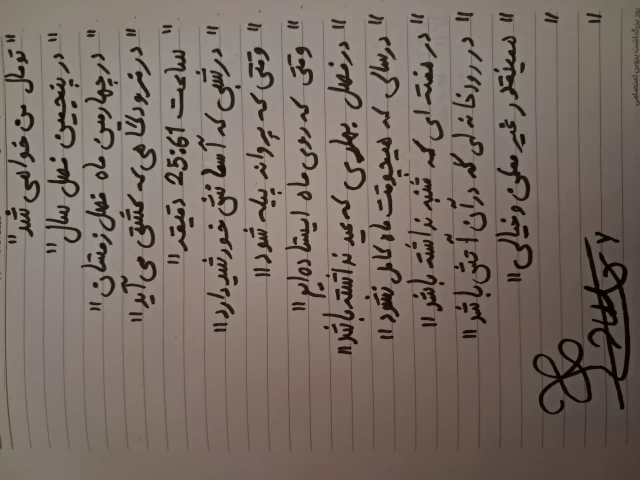 "تو مال من خواهی شد"
"در پنجمین فصل سال"
"در چهارمین ماه فصل زمستان"
"در فرودگاهی که کشتی می آید"
"ساعت 25:61 دقیقه"
"در شبی که آسمانش خورشید دارد"
"وقتی که پروانه پیله شود"
"وقتی که روی ماه ایستاده ایم"
"در فصل بهاری که عید نداشته باشد"
"در سالی که هیچوقت ماه کامل نشود"
"در هفته ای که شنبه نداشته باشد"
"در رودخانه ای که در آن آتش باشد"
"همینقدر غیر ممکن و خیالی"
"
"